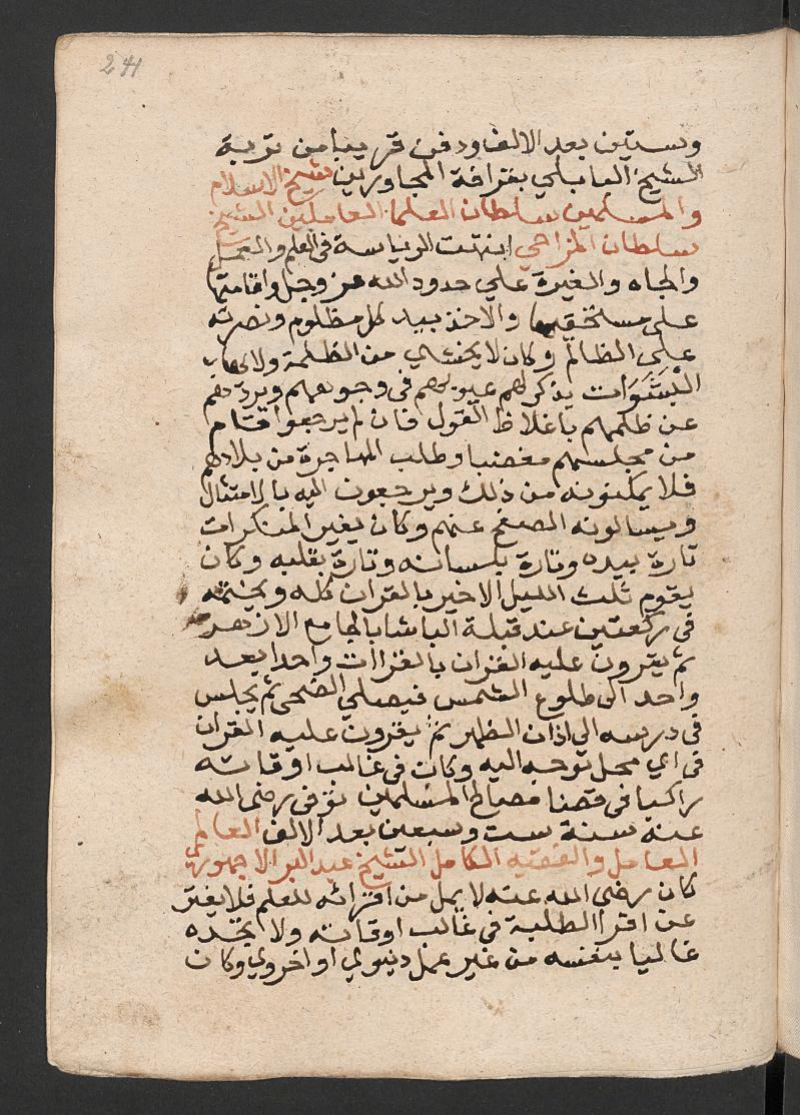 241
وستين بعد الالف ودفن قريبا من تربة
الشيخ البابلي بقرافة المجاورين شيخ الاسلام
والمسلمين سلطان العلما العاملين الشيخ
سلطان المزاحي انتهت الرياسة في العلم والعمل
والجاه والغيرة علي حدود الله عز وجل واقامتها
علي مستحقيها والاخذ بيد كل مظلوم ونصرته
علي الظالم وكان لا يخشي من الظلمة ولا يهاب
البشوات يذكر لهم عيوبهم في وجوههم ويردهم
عن ظلمهم باغلاظ القول فان لم يرجعوا قام
من مجلسهم مغضبا وطلب المهاجرة من بلادهم
فلا يمكنونه من ذلك ويرجعون اليه بالامتثال
ويسالونه الصفح عنهم وكان يغير المنكرات
تارة بيده وتارة بلسانه وتارة بقلبه وكان
يقوم ثلث الليل الاخير بالقران كله ويختمه
في ركعتين عند قبلة الباشا بالجامع الازهر
ثم يقرون عليه القران بالقراات واحدا بعد
واحد الي طلوع الشمس فيصلي الضحي ثم يجلس
في درسه الي اذان الظهر ثم يقرون عليه القران
في اي محل توجه اليه وكان في غالب اوقاته
راكبا في قضا مصالح المسلمين توفي رضي الله
عنه سنة ست وسبعين بعد الالف العالم
العامل والفقيه الكامل الشيخ عبد البر الاجهوري
كان رضي الله عنه لا يمل من اقرائه للعلم فلا يفتر
عن اقرا الطلبة في غالب اوقاته ولا تجده
خاليا بنفسه من غير عمل دنيوي او اخروي وكان